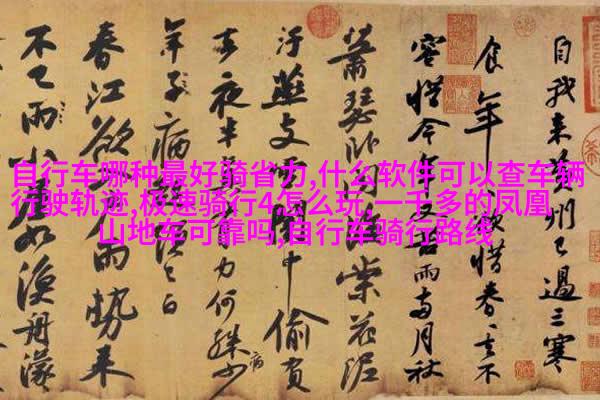 自行车哪种最好骑省力,什么软件可以查车辆
行驶轨迹,极速骑行4怎么玩,一千多的凤凰
山地车可靠吗,自行车骑行路线
自我来黄州已過三寒
食年欲惜春去不
容惜今年又苦雨两月秋
蕭瑟卧聞棠花泥
汙燕支雪闇中偷負
去夜半力何殊少
年子病已白
春江欲入雨勢来
不已雨小屋如漁舟濛